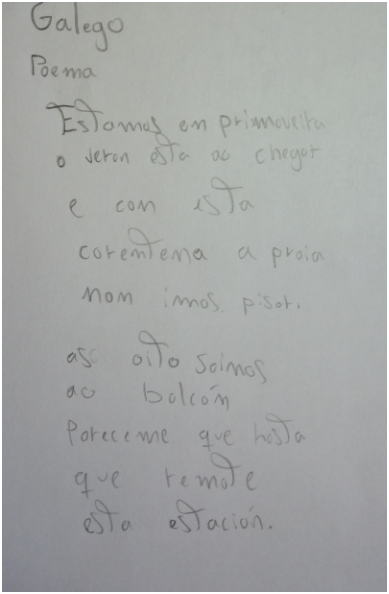 Galego
Poema
Estamos en primaveira
o veron esta ao chegar
e con esta
corentena a praia
non imos pisar.
as oito saimos
ao balcón
Pareceme que hasta
que remate
esta estación.